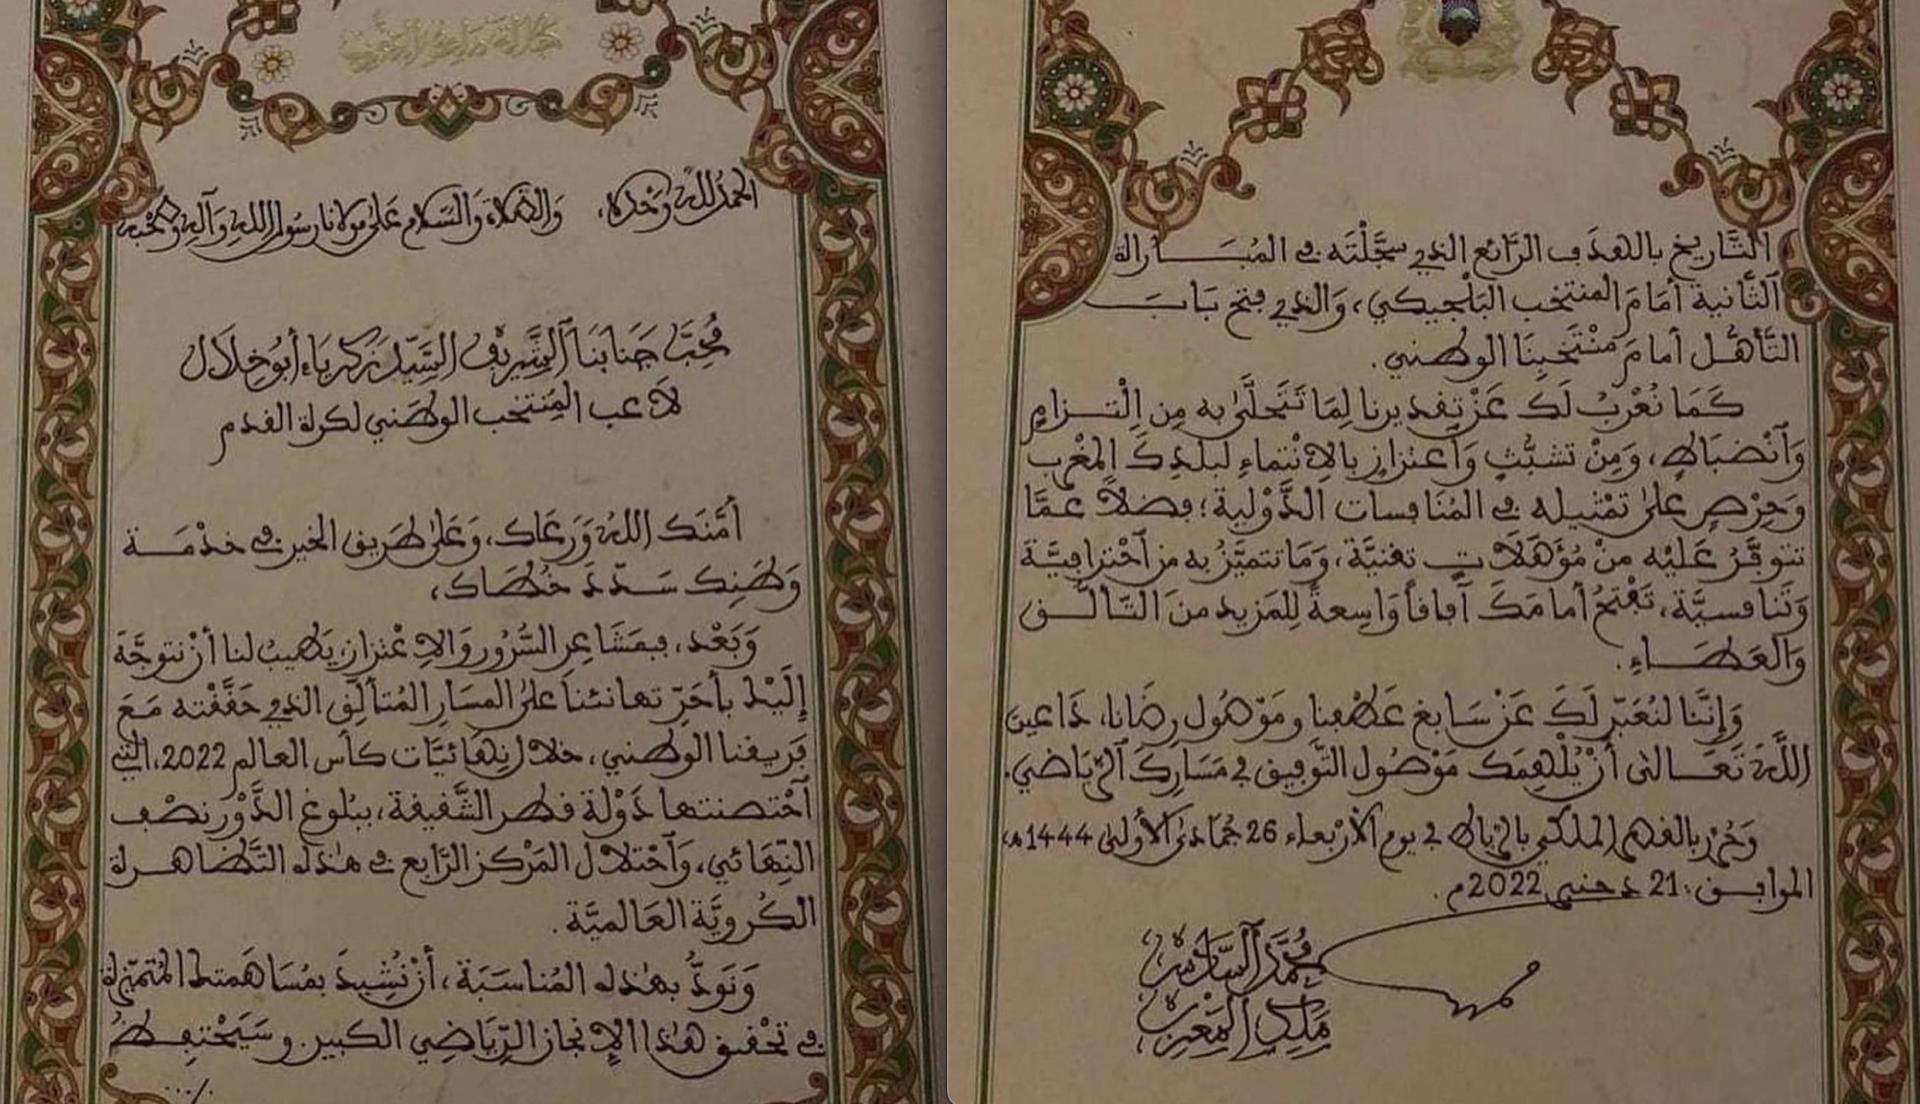 جلالة ملك المغرب
الحمد لله وحده، والصلاة والسلام على مولانا رسول الله وآله وصحبه
مُحِبَّ جَنابِنَا الشَّرِيفِ السَّيِّد زكرياء أبو خلال
لاعب المُنتخب الوطني لكرة القدم
أمَّنَكَ اللهُ وَرَعَاك، وَعَلى طَرِيق الخير في خدْمَـــة
وَطَنِكَ سَدَّدَ خُطَاك،
وَبَعْد، فبمَشَاعِر السُّرُور وَالاِعْتزاز، يَطِيبُ لنا أنْ نتوجَّهَ
إلَيْكَ بأحَرِّ تهانئنا علَى المسَارِ المُتألِّقِ الذي حَقَّقْته مَعَ
فَريقنا الوطني، خلال نِهَائيَّات كأس العالم 2022، التي
آحْتضنتها دَوْلة قطر الشَّقيقة، ببُلوغ الدَّوْر نصْف
النِّهَائي، وَآحْتلال المَرْكز الرَّابع في هذه التَّظاهـرة
الكُرويَّة العَالميَّة.
وَنَودُّ بهذه المُناسَبَة، أنْ نُشِيدَ بمُسَاهَمتك المُتميِّزة
في تحْقيق هَذا الإنجاز الرِّيَاضِي الكبير. وسَيَحْتفِـظُ
.../.
التَّاريخ بالهدَف الرَّائع الذي سَجَّلْتَه في المُبَـــاراة
الثَّانية أمَامَ المنتخب البَلْجيكي، وَالذي فتح بَـابَ
التَّأهُّل أمامَ مُنْتَخَبِنَا الوطني.
كَمَا نُعْرِبُ لَكَ عَنْ تقديرنا لِمَا تَتَحَلَّى به مِن اِلْتــزام
وَآنْضبَاطٍ، وَمِنْ تشبُّثٍ وَآعتزازٍ بالاِنْتماءِ لبلدِكَ المغْرب
وَحِرْصٍ علَى تمْثيله في المُنَافسات الدَّوْلية؛ فضلاً عَمَّا
تتوفَّرُ عَليْه منْ مُؤَهَلاتٍ تقنيَّة، وَمَا تتميَّزُ به من آحْترافِيَّة
وَتَنافسيَّة، تَفْتحُ أمامَكَ آفاقاً وَاسِعةً لِلمَزيد منَ التَّألُّــق
وَالعَطــاءِ.
وَإنَّنا لنُعَبِّر لَكَ عَنْ سَابغ عَطْفِنا ومَوْصُول رضانا، دَاعين
اللهَ تعَــالى أنْ يُلْهِمَكَ مَوْصُول التَّوفيق في مَسَارِكَ الرِّيَاضي.
وَحُرِّر بالقصر الملكي بالرباط في يوم الأرْبعاء 26 جُمَادَى الأولى 1444هـ
الموافـق: 21 دجنبر 2022م.
مُحمَّد السَّادس
مَلِك المَغْرِب